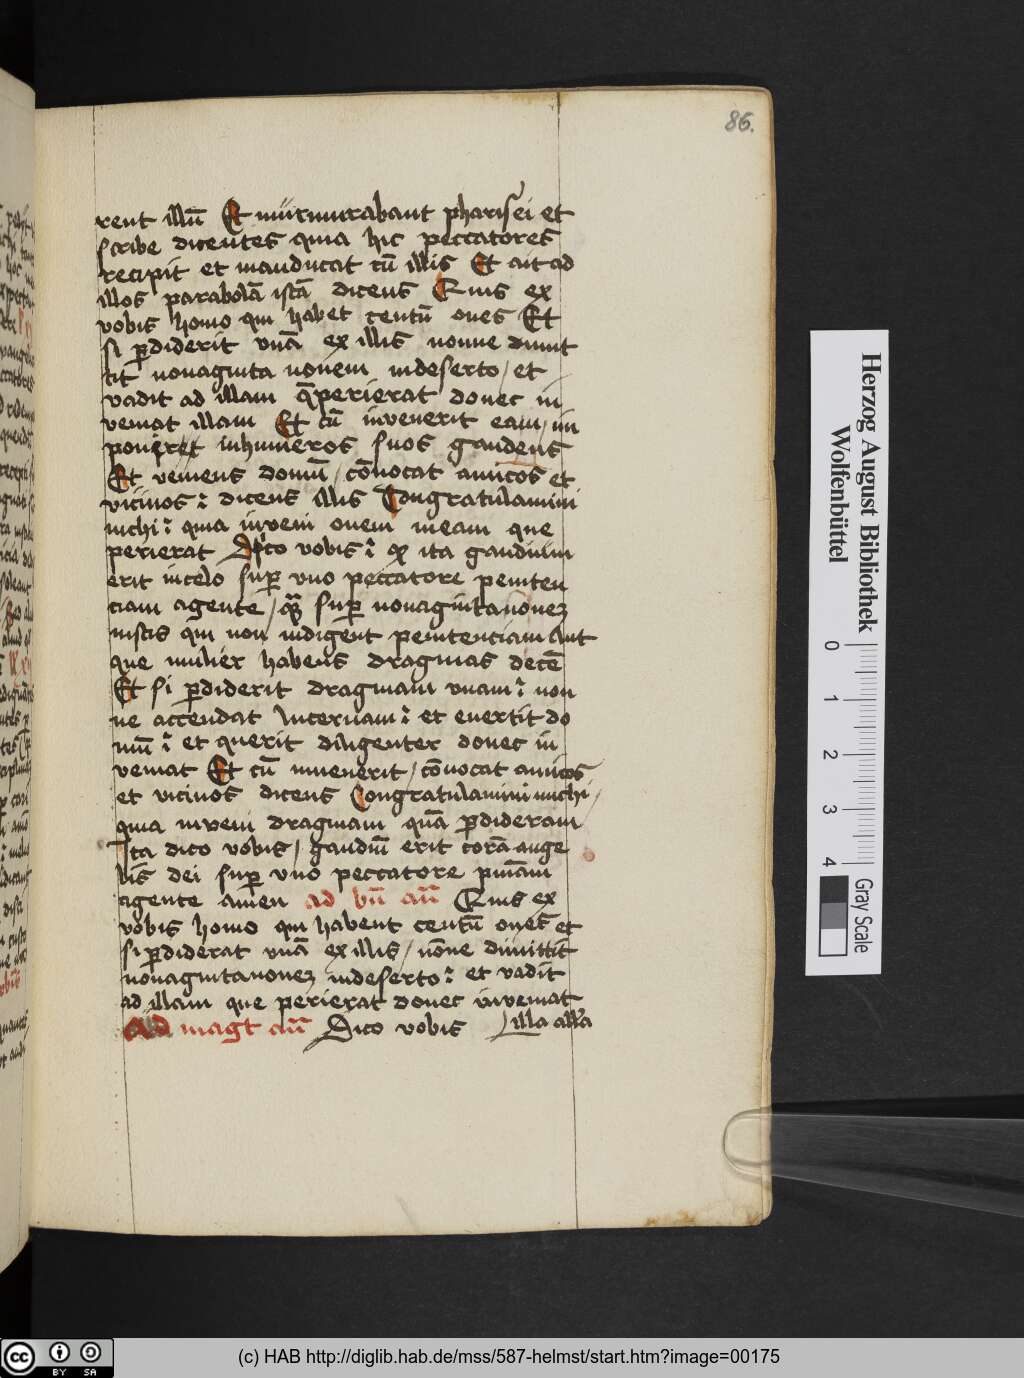 86.
rent illū Et murmurabant pharisei et
scribe dicentes quia hic peccatores
recipit et manducat cū illis Et ait ad
illos parabolā istā dicens Quis ex
vobis homo qui habet centū oues Et
si ꝑdiderit vnā ex illis nonne dimit
tit nonaginta nouem indeserto / et
vadit ad illam q̄ perierat donec in
veniat illam Et cū invenerit eam / im
ponēret inhumeros suos gaudens
Et veniens domū / cōuocat amicos et
vicinos : dicens illis Congratulamini
michi : quia inveni ouem meam que
perierat Dico vobis : ꝙ ita gaudium
erit incelo suꝑ vno peccatore peniten
ciam agente / quā suꝑ nonagintanouem
iustis qui non indigent penitenciam Aut
que mulier habens dragmas decē
Et si ꝑdiderit dragmam vnam : non
ne accendat lucernam : et euertit do
mū : et querit diligenter donec in
veniat Et cū inuenerit / cōuocat amicos
et vicinos dicens Congratulamini michi /
quia inveni dragmam quā ꝑdideram
Ita dico vobis / gaudiū erit corā ange
lis dei suꝑ vno peccatore pniām
agente amen ad bn̄ an̄ Quis ex
vobis homo qui habent centū oues et
si ꝑdiderat vnā ex illis / nōne dimittit
nonagintanouem indeserto : et vadit
ad illam que perierat donec inveniat
Ad magt an̄ Dico vobis illa all'a
Herzog August Bibliothek
Wolfenbüttel
0 1 2 3 4
Gray Scale
cc BY SA
(c) HAB http://diglib.hab.de/mss/587-helmst/start.htm?image=00175